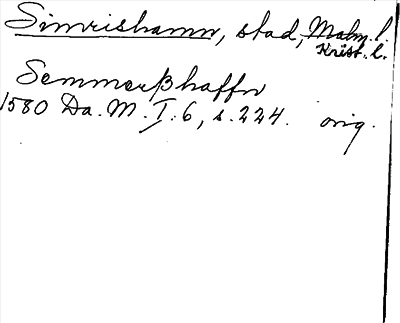 Simrishamn, stad, Malm. l.
Krist. l.
Semmerßhaffn
1580 Da. M. I. 6, s. 224. orig.